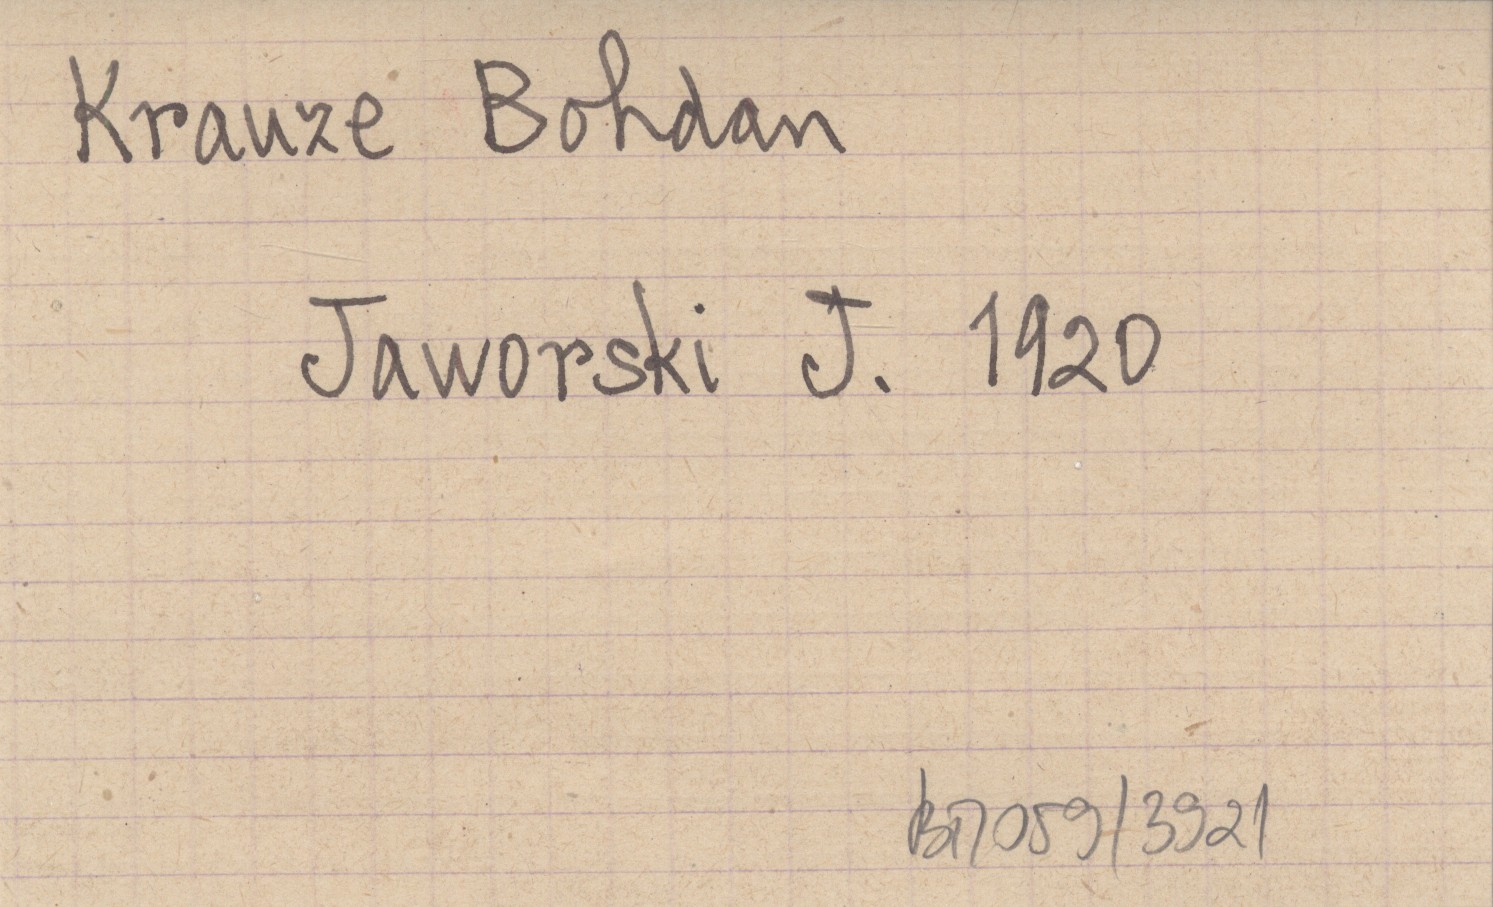 Krauze Bohdan
Jaworski J. 1920
BN059/3921